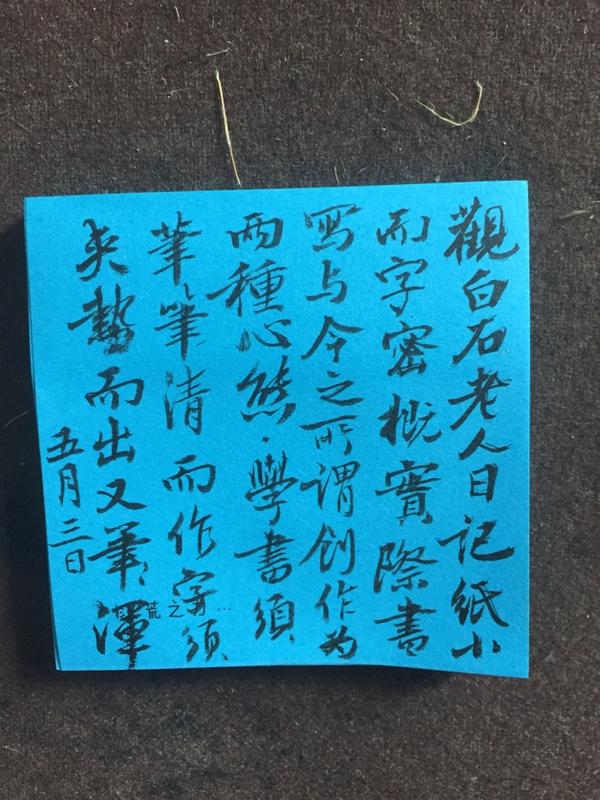 觀白石老人日記紙小
而字密概實際書
寫与今之所謂創作为
兩種心態.學書須
筆筆清而作字須
夹勢而出又筆筆渾
五月三日
荒之…